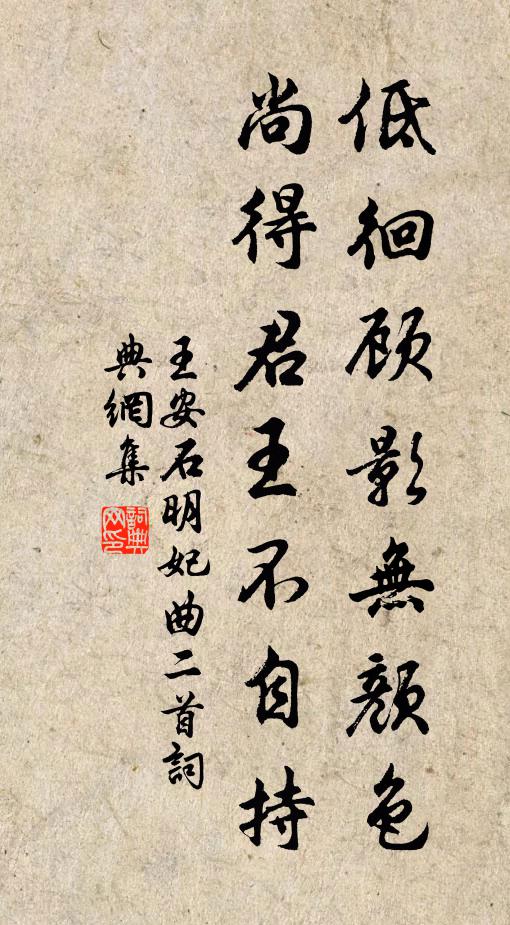 低徊顾影無顏色
尚得君王不自持
王安石明妃曲二首詞
典網集
詞典网印